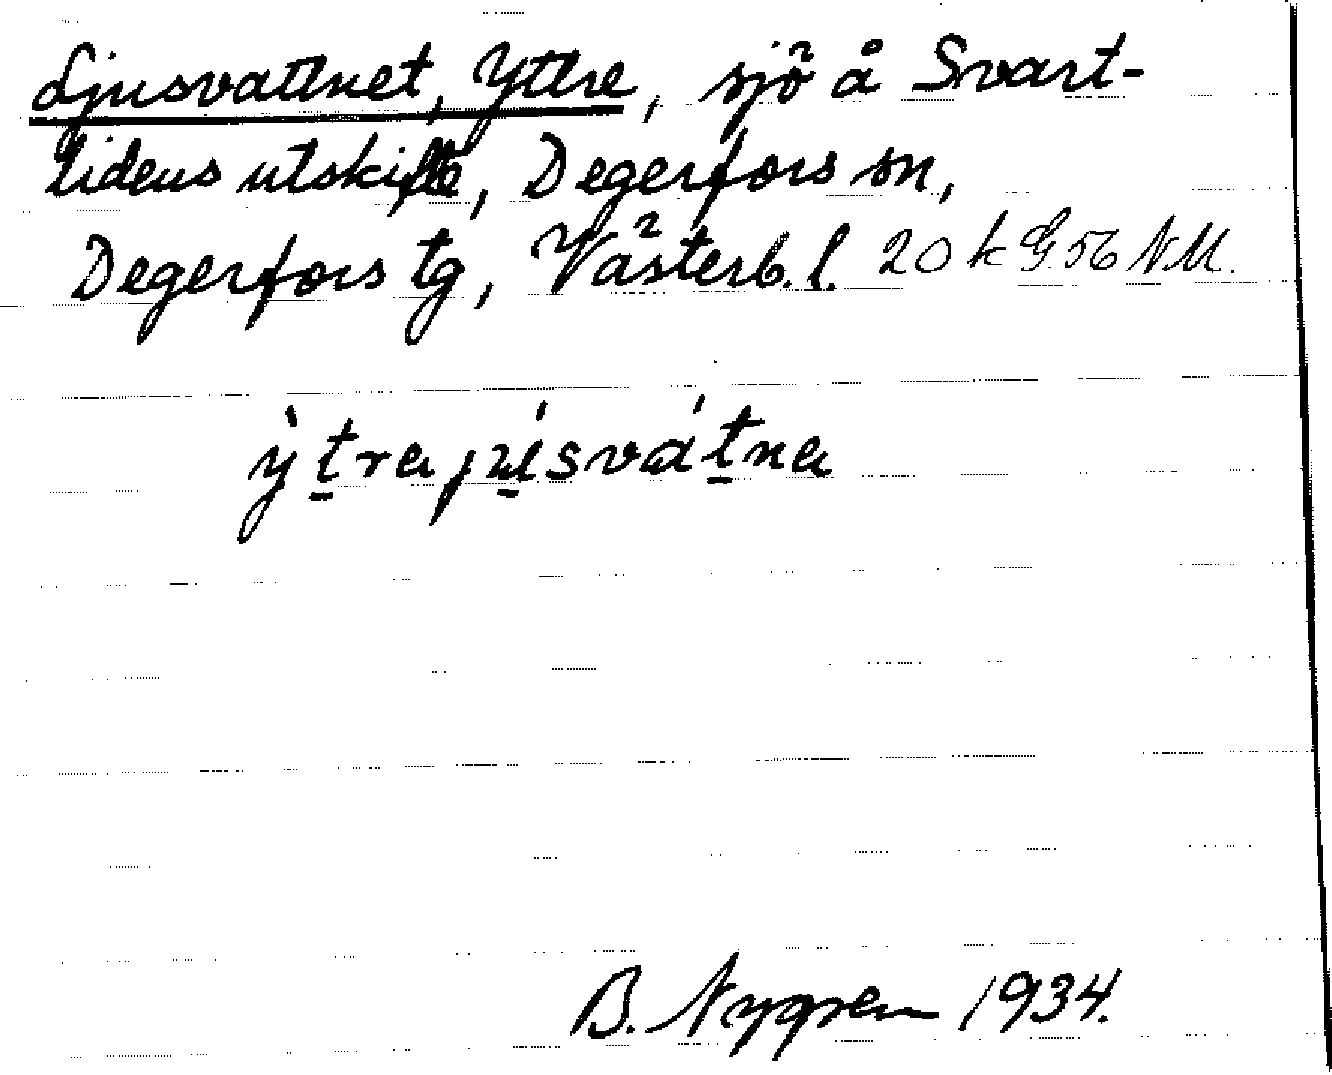 Ljusvattnet, Yttre, sjö å Svart-
lidens utskifte, Degerfors sn,
Degerfors tg, Västerb. l. 20 k G. 56 NM.
B. Nygren 1934.